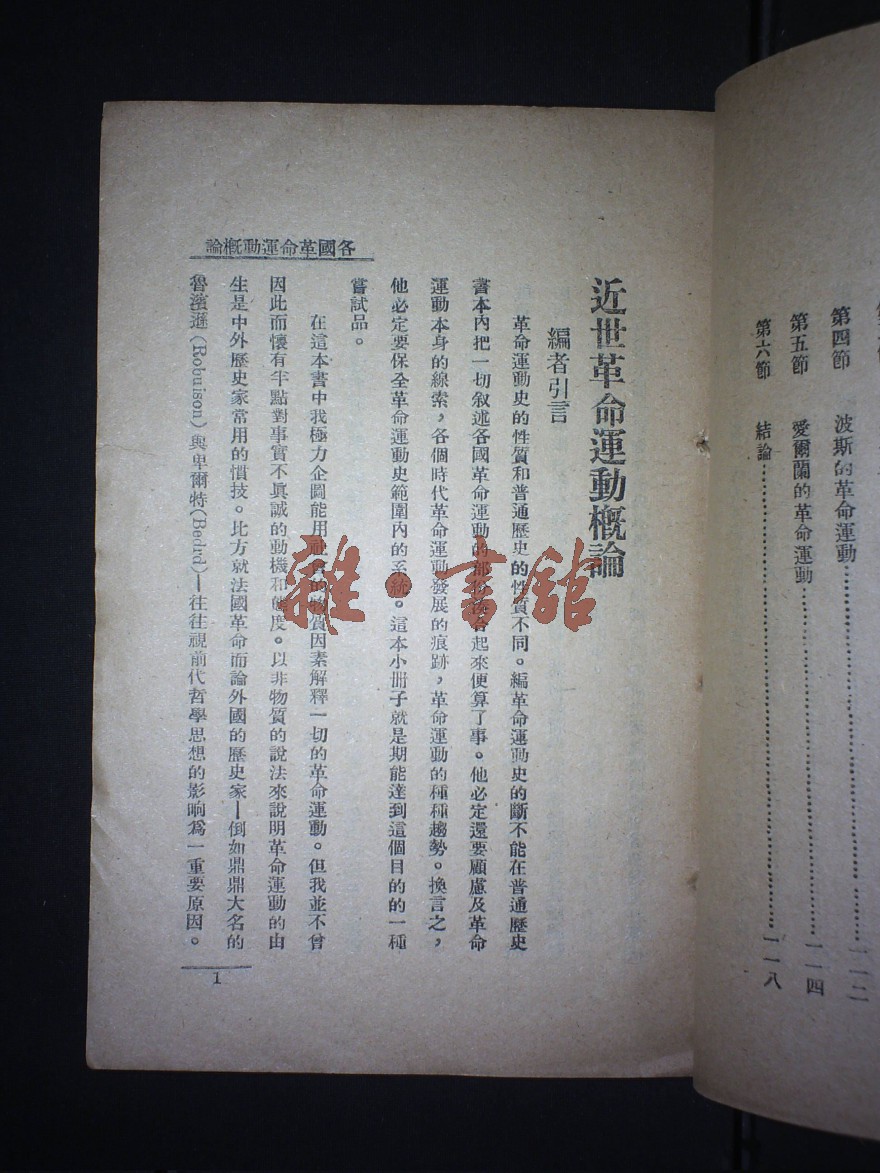 第四節　波斯的革命運動……一一二
第五節　愛爾蘭的革命運動……一一四
第六節　結論……一一八
各國革命運動概論
近世革命運動概論
編者引言
革命運動史的性質和普通歷史的性質不同。編革命運動史的斷不能在普通歷史
書本內把一切叙述各國革命運動的部份合起來便算了事。他必定還要顧慮及革命
運動本身的線索，各個時代革命運動發展的痕跡，革命運動的種種趨勢。換言之，
他必定要保全革命運動史範圍內的系統。這本小册子就是期能達到這個目的的一種
嘗試品。
在這本書中我極力企圖能用社會的物質因素解釋一切的革命運動。但我並不曾
因此而懷有半點對事實不眞誠的動機和態度。以非物質的說法來說明革命運動的由
生是中外歷史家常用的慣技。比方就法國革命而論外國的歷史家—倒如鼎鼎大名的
魯濱遜(Robuison)與卑爾特(Bedrd)—往往視前代哲學思想的影响爲一重要原因。
1
雜·書舘